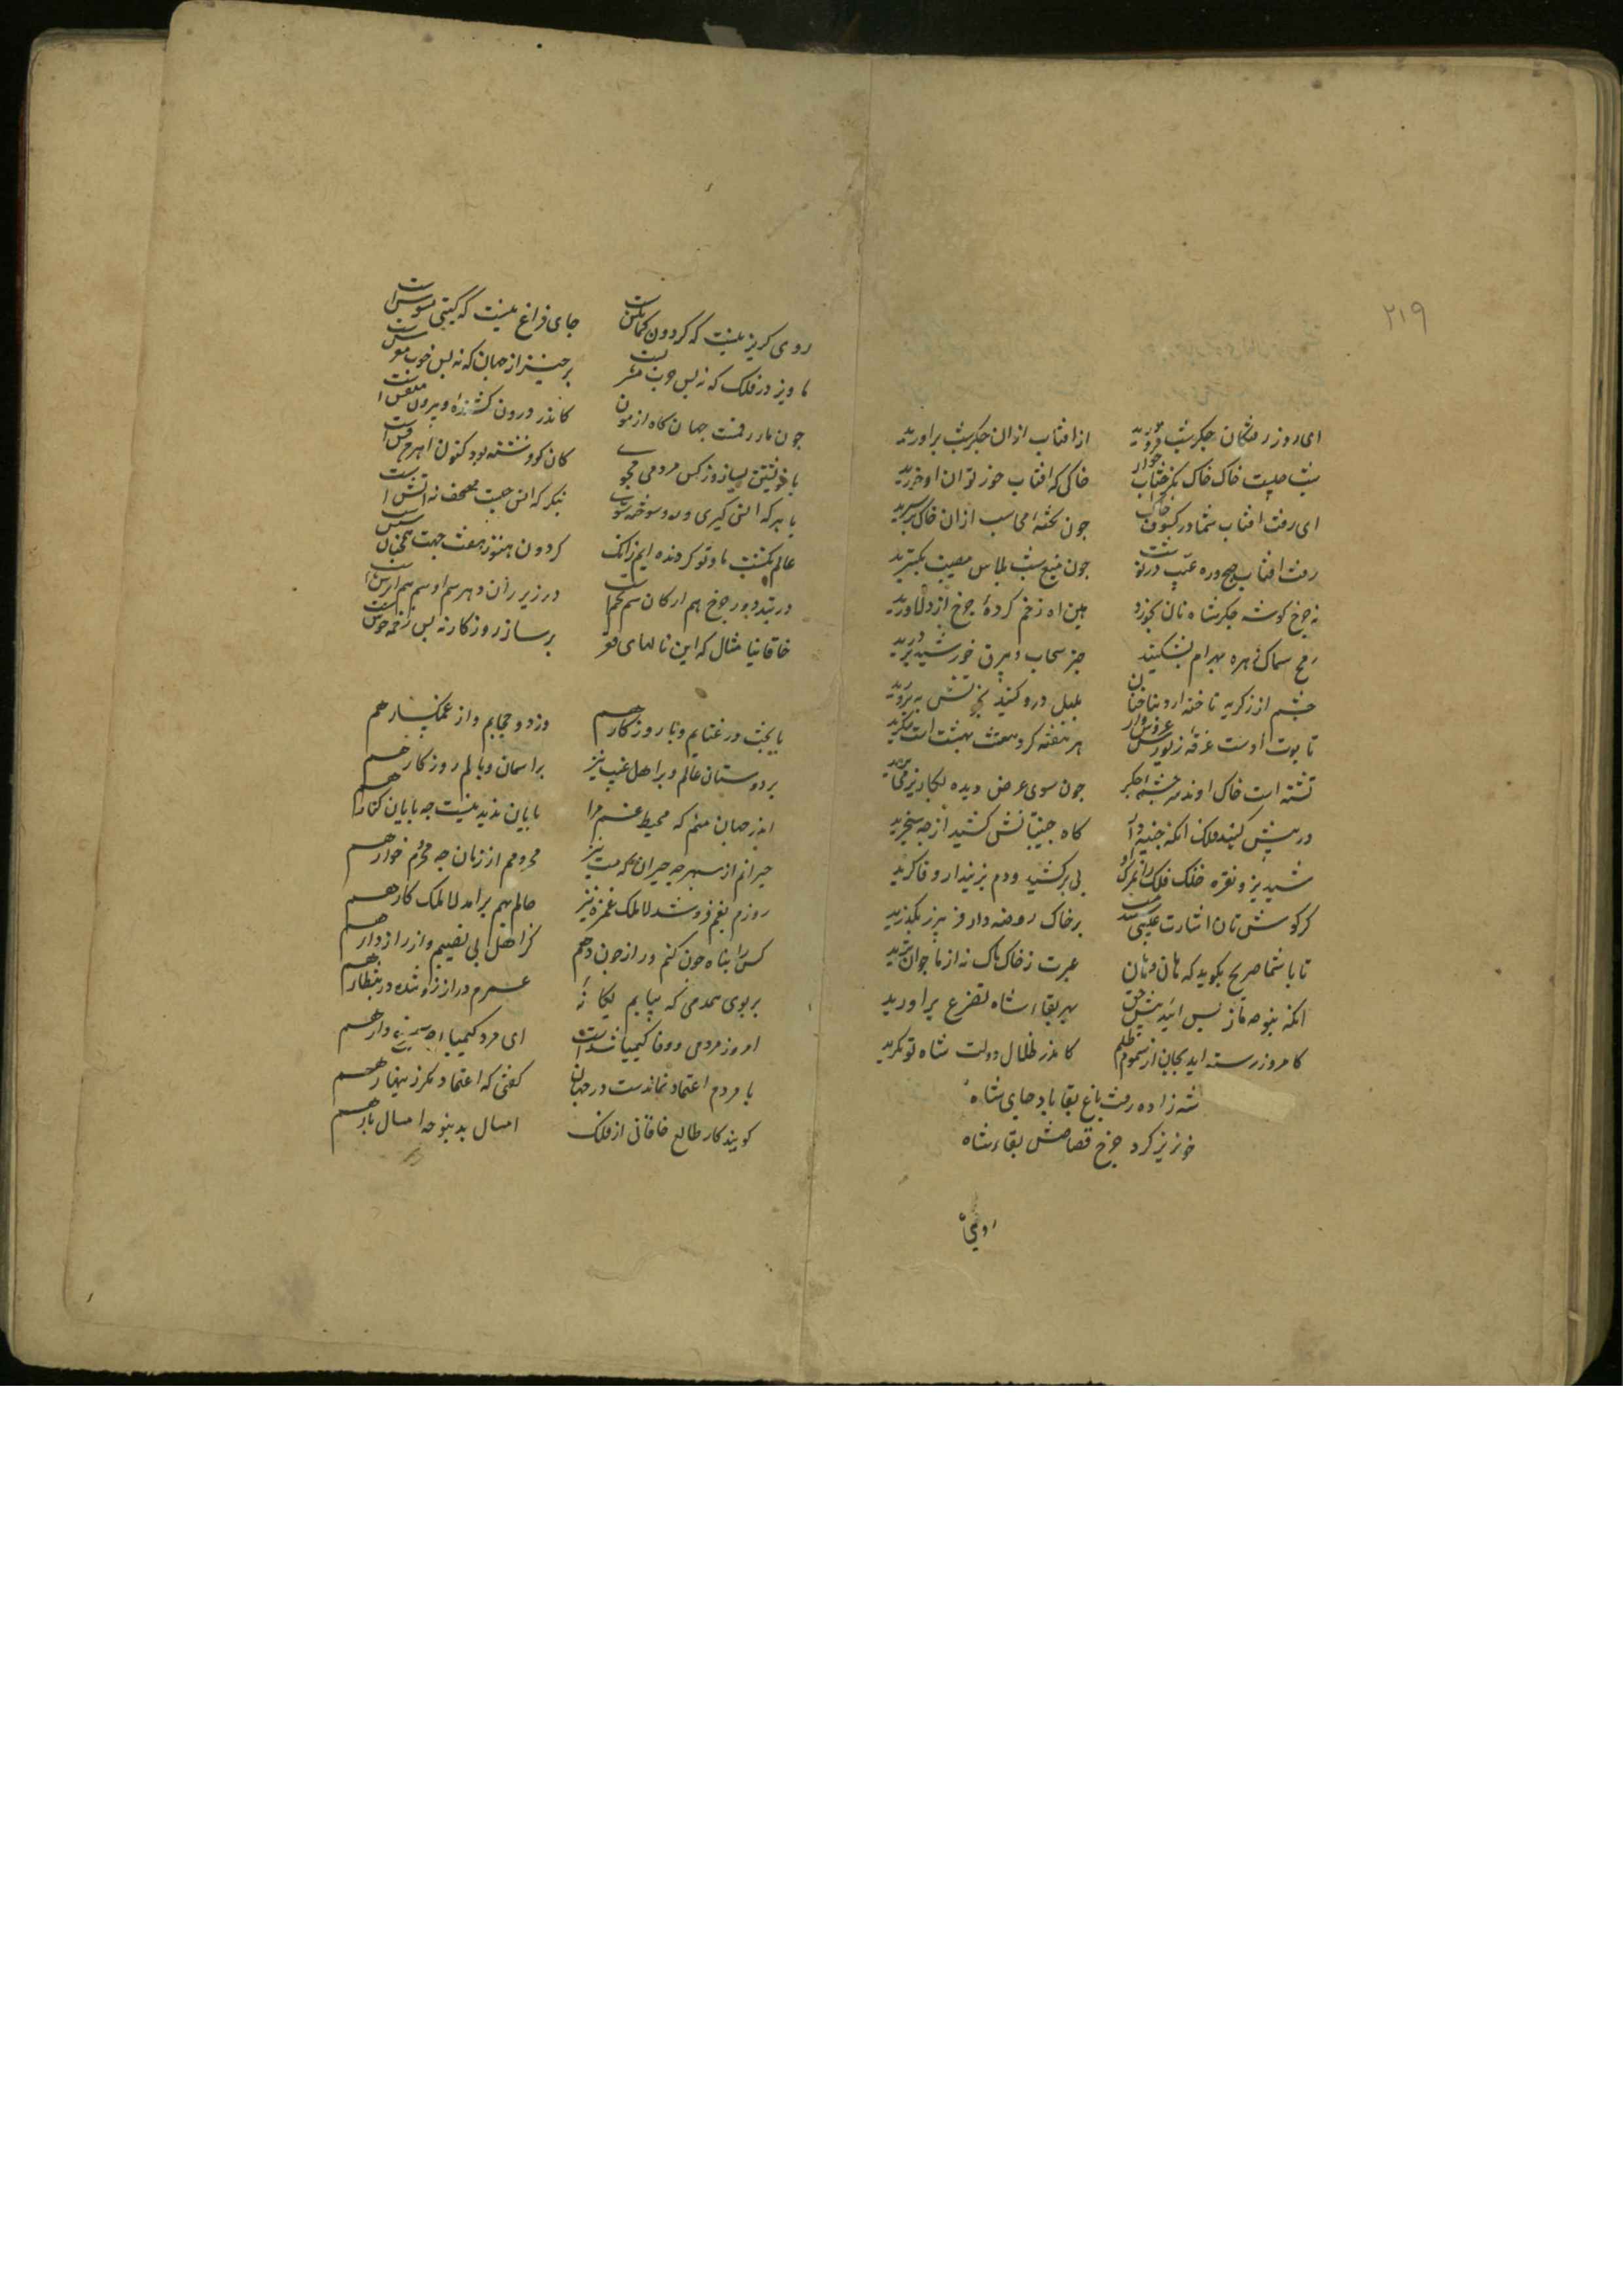 ٢١٩
ای روز رفتگان جکر شب فرو درید از افتاب از ان جکر شب براورید
شب جیست خاک خاک نکر افتاب خوار خاکی که افتاب خورد توان او خورید
ای رفت افتاب شما در کسوف خاک جون تخته محاسب از ان خاک بر سرید
رفت افتاب صبح ره غیب در نوشت جون میغ شب پلاس مصیبت بکسترید
نه جرخ کوشه جکر شاه تان بخورد هین اه زخم کرده جرخ از دلاورید
رمح سماک زهره بهرام بشکنید جتر سحاب و بیرق خورشید بردرید
جشم از ز کریه ناخنه ارد بناخنان بلبل درو کنید
تابوت اوست غرقه زیور عروس وار هر هفته کرد هشت بهشت است بنکرید
تشنه است خاک او ز سرجشمه جکر جون سوی عرض دیده
در پیش کنبدش فلک انک جنیبه دار کاه جنیبتانش کشید از جه سنجرید
شبدیز و نقره خنک فلک را بمرک او پی برکشید و دم ببرید ار وفا کرید
کر کوش تان اشارت غیبی برخاک روضه وار فریبرز بکذرید
تا با شما صریح بکوید که هان و هان عبرت ز خاک ماک نه از ما جوان ترید
انک بنوحه باز پس ائید پیش حق بهر بقاء شاه تضرع براورید
کامروز رسته اید بجان از سموم ظلم کاندر ظلال دولت شاه توکرید
شه زاده رفت باغ بقا باد جای شاه
خونریز کرد جرخ قصاصش بقاء شاه
روی کریز نیست که کردون کمانکش است جای فراغ نیست که کیتی مشوش است
ماویز در فلک که نه بس جرب مشربست برخیز از جهان که نه بس خوب مفرش است
جون مار ارقمست جهان کاه ازمون کاندر درون کشنده و بیرون منقش است
با خویشتن بساز و ز کس مردمی مجوی کان کو فرشته بود کنون اهرمن وش است
با هر که انس کیری ازو سوخته شوی بنکر که انس جیست مصحف ز اتش است
عالم نکشت و ما و تو کردنده ایم زانک کردون هنوز هفت جهت همجنان شش است
در بند دور جرخ هم ارکان هم انجم است در زیر ران دهر هم ادهم هم ابرش است
خاقانیا منال که این نالهای تو برساز روزکار نه بس زخمه خوش است
با بخت در عتابم و با روزکار هم وز دو حجابم و از غمکسار هم
بر دوستان عالم و بر اهل غیب نیز بر اسمان وبالم بر روزکار هم
اندر جهان منم که محیط غم مرا پایان پدید نیست جه پایان کنار هم
حیرانم از سپهر جه حیران که مست نیز محرومم از زمان جه محروم خوار هم
روزم بغم فروشد لا بلک عمر نیز حالم بهم برامد لا بلک کار هم
کس را پناه جون کنم و راز جون دهم کز اهل بی نصیبم و از رازدار هم
بر بوی همدمی که بیابم یکانه عمرم دراز زاد شده در انتظار هم
امروز مردمی و وفا کیمیا شد است ای مرد کیمیا جه سیمرغ وار هم
با مردم اعتماد نماندست در جهان کفتی که اعتماد مکر زینهار هم
کویند کار طالع خاقانی از فلک امسال بد نبود جه امسال پار هم